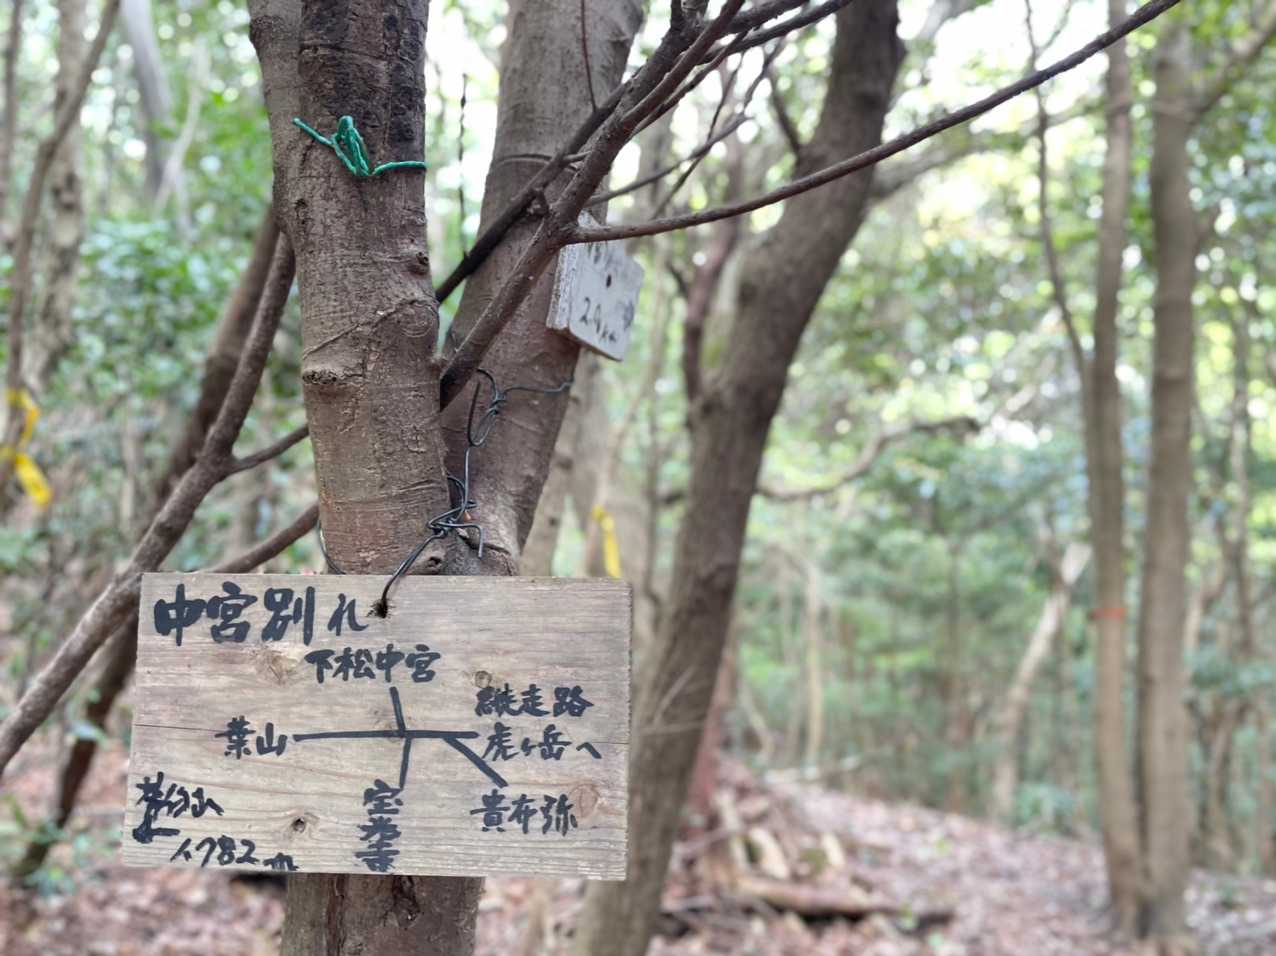 中宮別れ
下松中宮
縦走路
葉山
虎ヶ岳へ
茶臼山
貴布弥
宝光寺
←1782m
2.4km